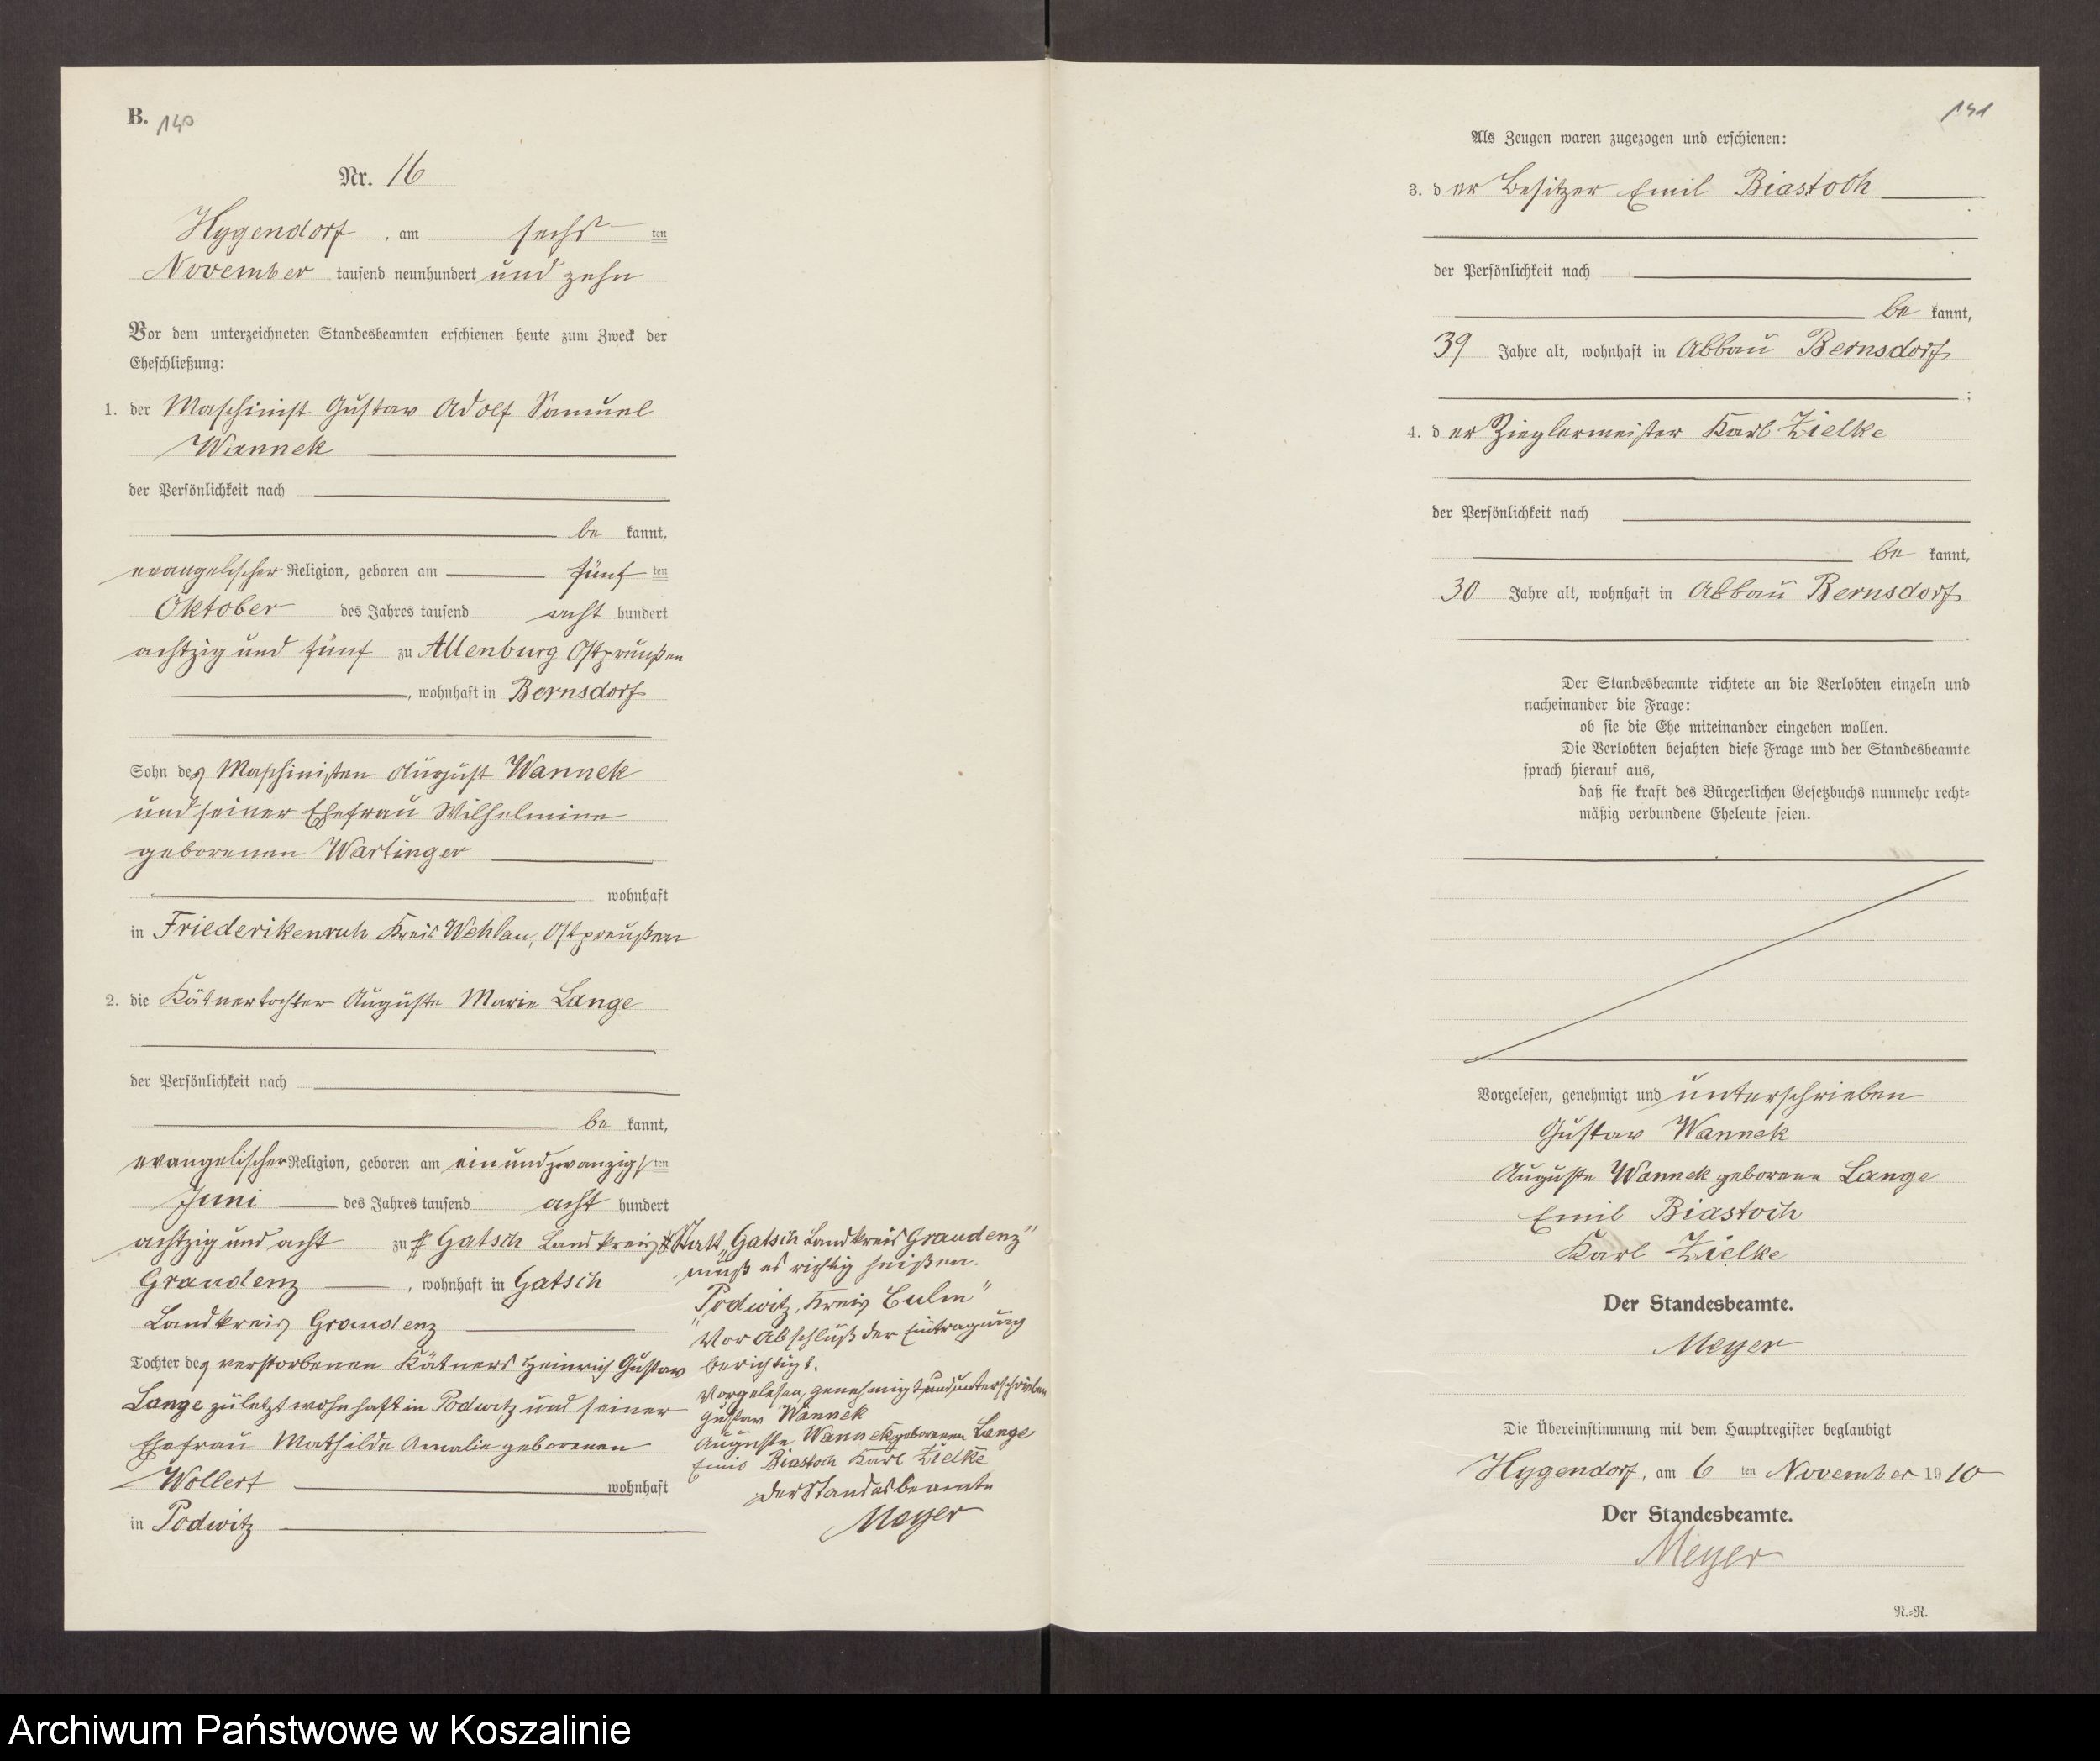 B. 140
Nr. 16
Hygendorf, am sechsten
November tausend neunhundert und zehn
Vor dem unterzeichneten Standesbeamten erschienen heute zum Zweck der
Eheschließung:
1. der Maschinist Gustav Adolf Samuel
Wannek
der Persönlichkeit nach
be kannt,
evangelischer Religion, geboren am fünf ten
Oktober des Jahres tausend acht hundert
achtzig und fünf zu Allenburg Ostpreußen
, wohnhaft in Bernsdorf
Sohn des Maschinisten August Wannek
und seiner Ehefrau Wilhelmine
geborenen Wartinger
wohnhaft
in Friederikenruh Kreis Wehlau, Ostpreußen
2. die Kätnertochter Auguste Marie Lange
der Persönlichkeit nach
be kannt,
evangelischer Religion, geboren am einundzwanzigsten
Juni des Jahres tausend acht hundert
achtzig und acht zu Gatsch Landkreis
Graudenz, wohnhaft in Gatsch
Landkreis Graudenz
Tochter des verstorbenen Kätners Heinrich Gustav
Lange zuletzt wohnhaft in Podwitz und seiner
Ehefrau Mathilde Amalie geborenen
Wollert wohnhaft
in Podwitz
Statt „Gatsch Landkreis Graudenz"
muß es richtig heißen.
„Podwitz, Kreis Culm"
Vor Abschluß der Eintragung
berichtigt.
Vorgelesen, genehmigt und unterschrieben
Gustav Wannek
Auguste Wannek geborenen Lange
Emil Biastoch Karl Zielke
Der Standesbeamte
Meyer
141
Als Zeugen waren zugezogen und erschienen:
3. der Besitzer Emil Biastoch
der Persönlichkeit nach
be kannt,
39 Jahre alt, wohnhaft in Abbau Bernsdorf
;
4. der Zieglermeister Karl Zielke
der Persönlichkeit nach
be kannt,
30 Jahre alt, wohnhaft in Abbau Bernsdorf
.
Der Standesbeamte richtete an die Verlobten einzeln und
nacheinander die Frage:
ob sie die Ehe miteinander eingehen wollen.
Die Verlobten bejahten diese Frage und der Standesbeamte
sprach hierauf aus,
daß sie kraft des Bürgerlichen Gesetzbuchs nunmehr recht-
mäßig verbundene Eheleute seien.
Vorgelesen, genehmigt und unterschrieben
Gustav Wannek
Auguste Wannek geborene Lange
Emil Biastoch
Karl Zielke
Der Standesbeamte.
Meyer
Die Übereinstimmung mit dem Hauptregister beglaubigt
Hygendorf, am 6 ten November 1910
Der Standesbeamte.
Meyer
N.-R.
Archiwum Państwowe w Koszalinie